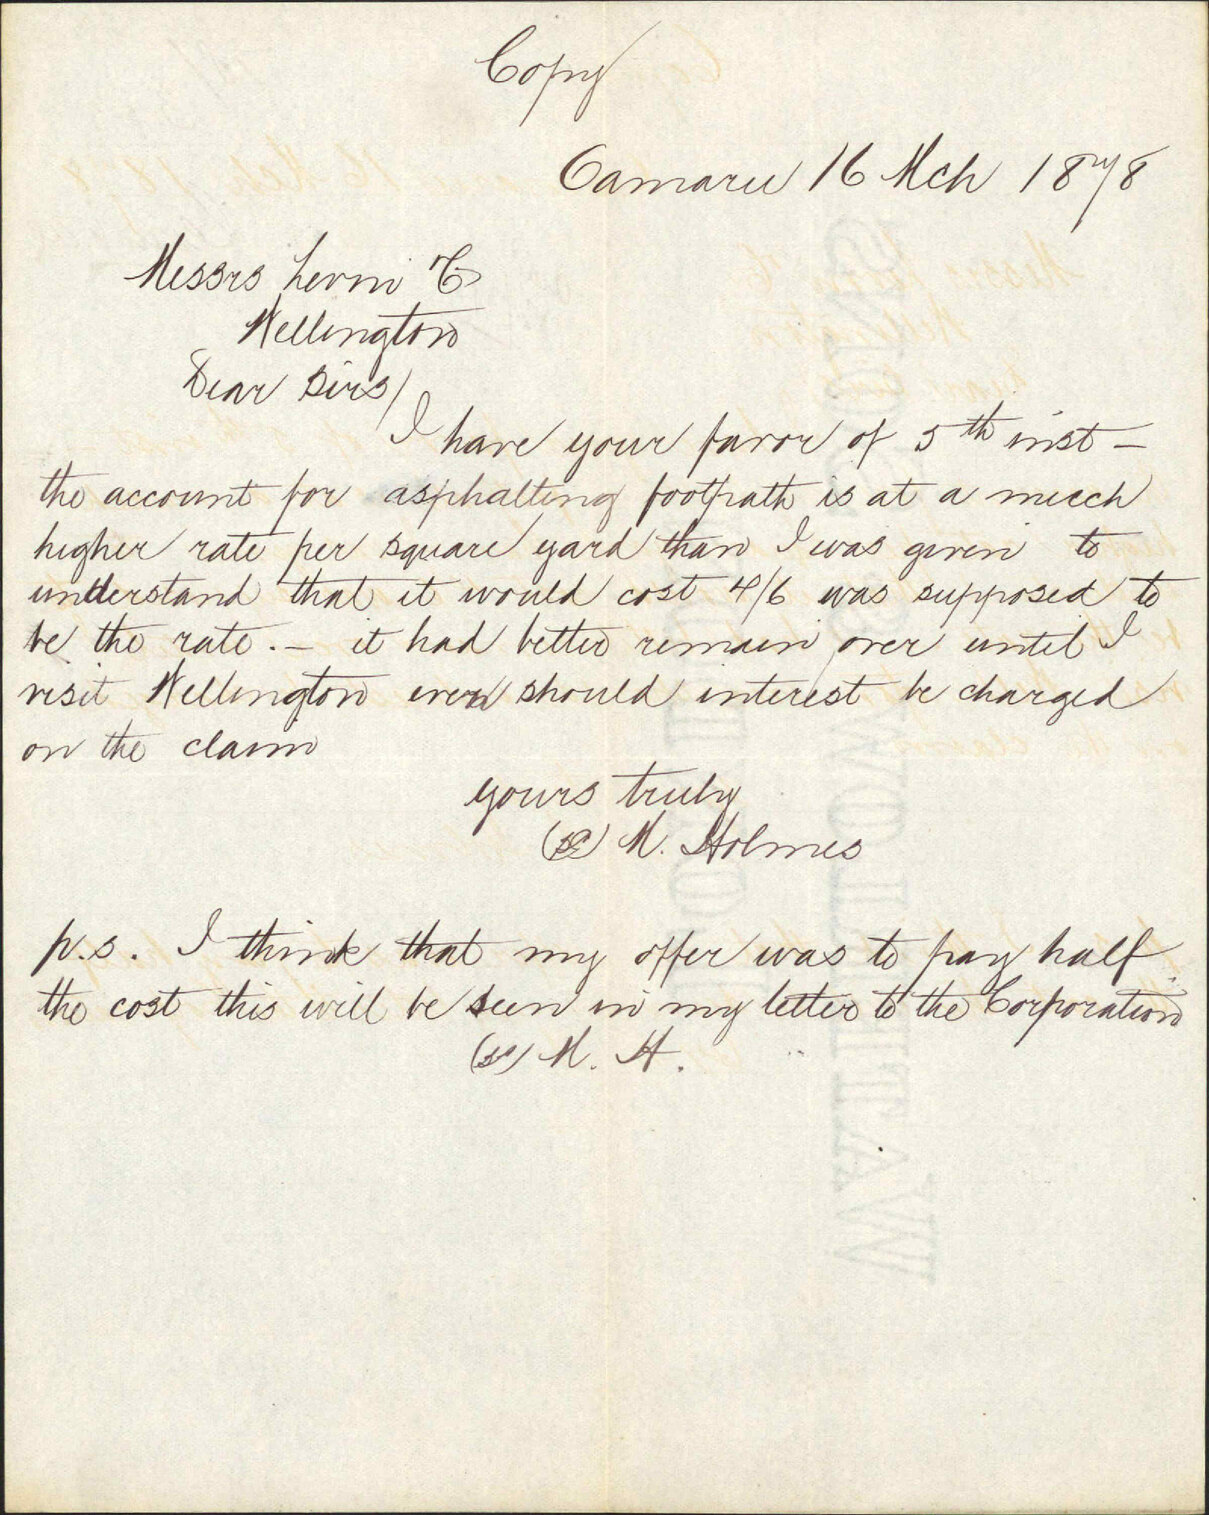 Copy
Oamaru 16 Mch 1878
Messrs Levin & Co
Wellington
Dear Sirs/
I have your favor of 5th inst –
the account for asphalting footpath is at a much
higher rate per square yard than I was given to
understand that it would cost 4/6 was supposed to
be the rate. – it had better remain over until I
visit Wellington even should interest be charged
on the claim
yours truly
(sd) M. Holmes
p.s. I think that my offer was to pay half
the cost this will be seen in my letter to the Corporation
(sd) M. H.